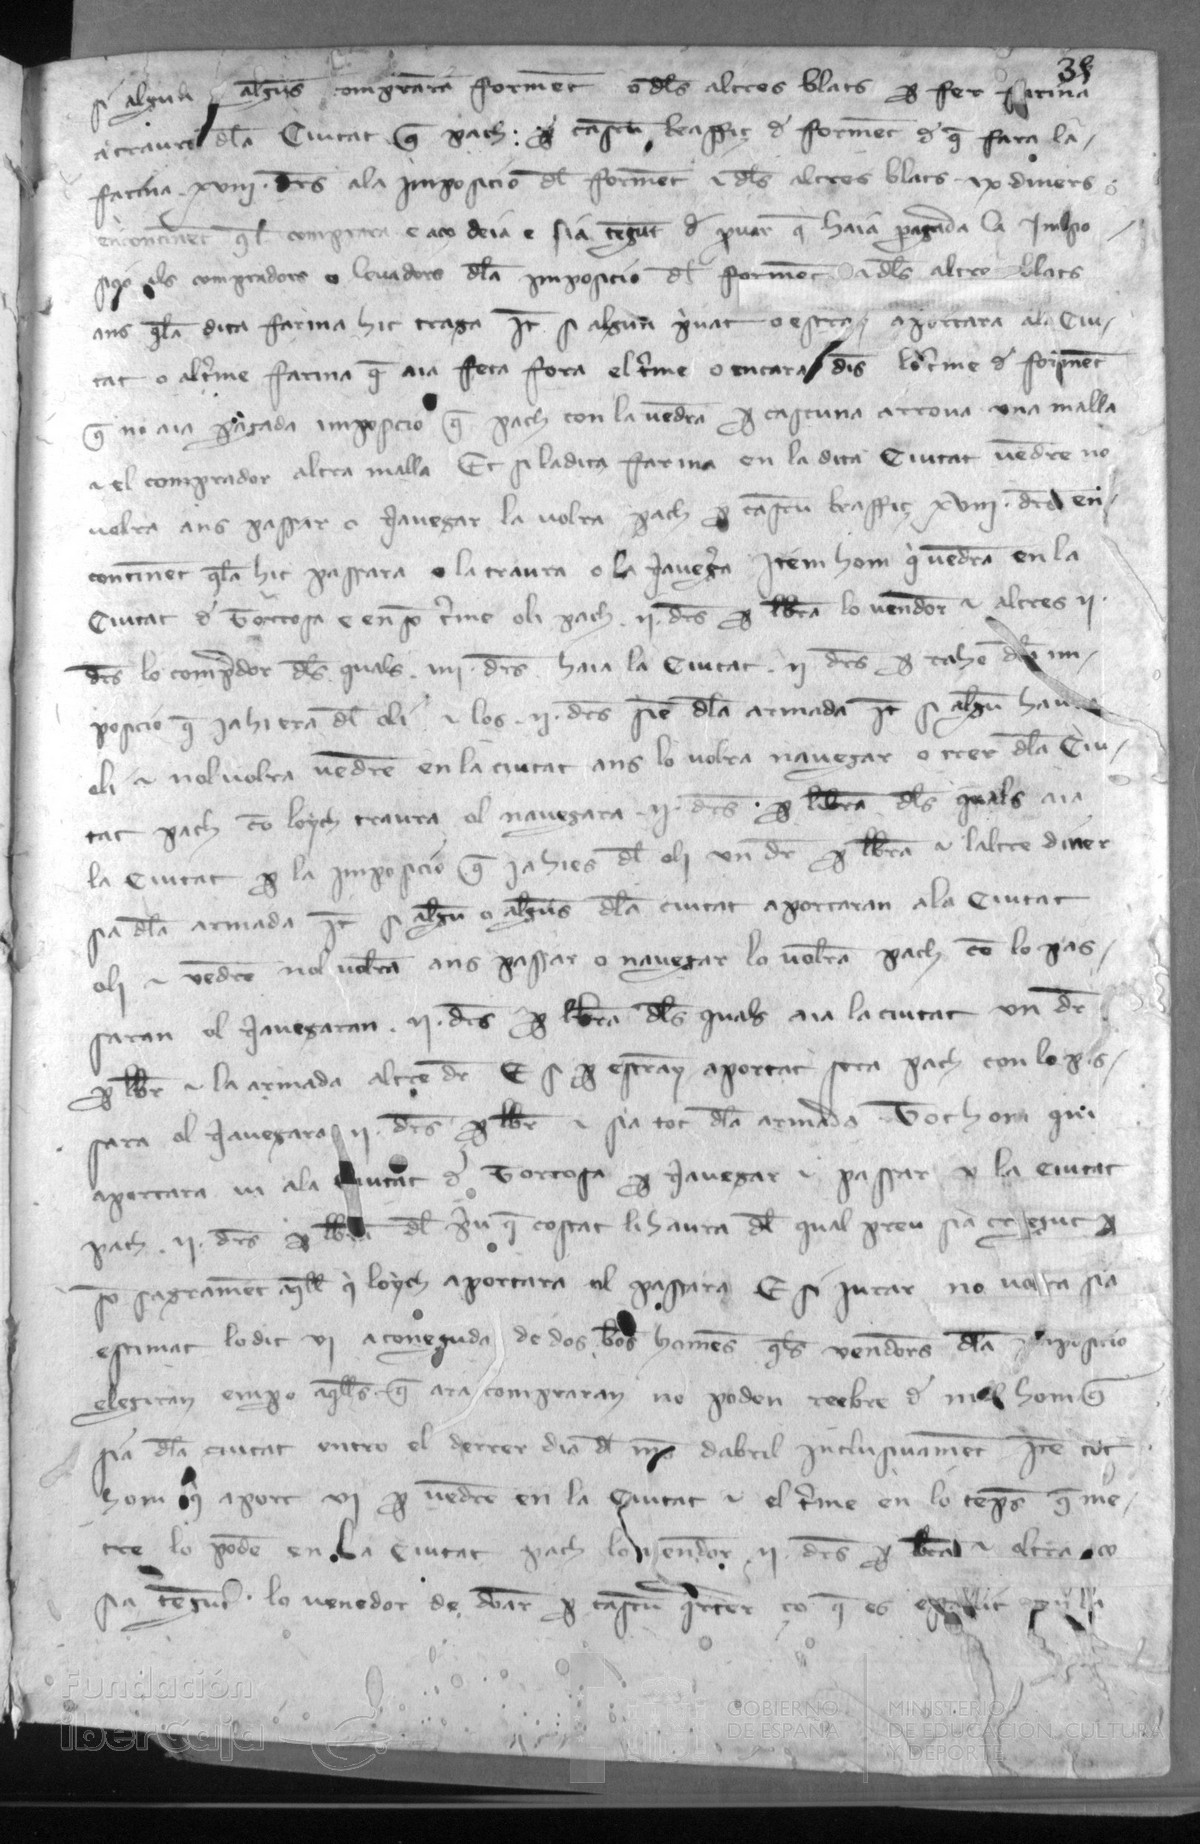 38
si algun o algūs compraran formēt o dls altres blats ꝑ fer farina
a traure dla Ciutat q̄ pach ꝑ cascū kaffiç d formēt d q̄ fara la
farina xviii drs ala imposicio dl formēt e dls altres blats ix diners
encontinēt ql comprara e aço deia e sia tēgut d ꝓuar q̄ haia pagada la Impo
sicio als compradors o leuadors dla imposicio dl formēt e dls altres blats
ans qla dita farina hic traga It̄ si algun priuat o estrany aportara ala Ciu
tat o al t̄me farina q̄ aia feta fora el t̄me o encara dīs lo t̄me d forment
q̄ no aia pagada imposicio q̄ pach con la uēdra ꝑ cascuna arroua una malla
e el comprador altra malla Et si la dita farina en la dita Ciutat uēdre no
uolra ans passar o nauegar la uolra pach ꝑ cascū kaffiç xviii drs en
continēt qla hic passara o la traura o la nauegra Item hom qui uēdra en la
Ciutat d Tortosa e en so t̄me oli pach ii drs ꝑ lbra lo uenedor e altres ii
drs lo compdor dls quals iiii drs haia la Ciutat ii drs ꝑ raho dla im
posicio q̄ ia hi era dl oli e los ii drs siē dla armada It̄ si algū haura
oli e nol uolra uēdre en la ciutat ans lo uolra nauegar o trer dla Ciu
tat pach cō loych traura ol nauegara ii drs ꝑ libra dls quals aia
la Ciutat ꝑ la imposicio q̄ ia hi es dl oli un dr ꝑ lbra e laltre diner
sia dla armada It̄ si algū o algūs dla ciutat aportaran ala Ciutat
oli e uēdre nol uolrā ans passar o nauegar lo uolrā pach cō lo pas
saran ol nauegaran ii drs ꝑ lbra dls quals aia la ciutat un dr
ꝑ lbr e la armada altre dr E si ꝑ estrany aportat sera pach con lo pas
sara ol nauegara ii drs ꝑ lbr e sia tot dla armada Tot hom qui
aportara ui ala Ciutat d Tortosa ꝑ nauegar e passar ꝑ la Ciutat
pach ii drs ꝑ lbra dl pu q̄ costat li haura dl qual preu sia cregut ꝑ
so sagramēt aqll qi loych aportara ol passara E si iurar no uolra sia
estimat lo dit vi a coneguda de dos bōs homēs qls uenedors dla imposicio
elegiran empo aqlls q̄ ara compraran no poden reebre d nul hom q̄
sia dla ciutat entro el derrer dia dl mes dabril inclusiuamēt Itē tot
hom qi aport vi ꝑ uēdre en la Ciutat e el t̄me en lo temps q̄ me
tre lo podē en la Ciutat pach lo uenedor ii drs ꝑ lbra e oltra aço
sia tēgut lo uenedor de dōar ꝑ cascū qrter ço q̄ es
Fundación
iberCaja
GOBIERNO
DE ESPAÑA
MINISTERIO
DE EDUCACIÓN, CULTURA
Y DEPORTE